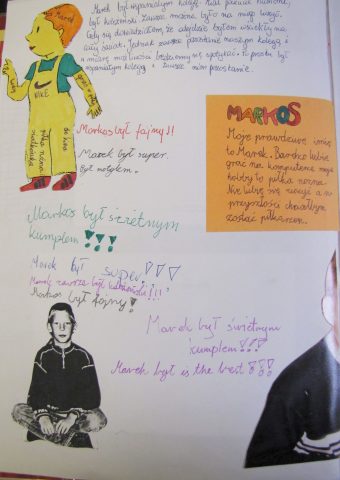 Marek był wspaniałym kolegą.
był
Zawsze można było na niego liczyć.
Gdy się dowiedziałem, że odejdzie byłem wściekły na
cały świat. Jednak zawsze pozostanie naszym kolegą i
w miarę możliwości będziemy się spotykać. Po prostu był
wspaniałym kolegą i zawsze nim pozostanie.
Marek
NIKE
piłka nożna
siatkówka
do kina
MARKOS
Moje prawdziwe imię
to Marek. Bardzo lubię
grać na komputerze moje
hobby to piłka nożna.
Nie lubię się a w
przyszłości chciałbym
zostać piłkarzem.
Markos był fajny!!
Marek był super.
Był
Markos był świetnym
kumplem!!!
Marek był super!!!
Marek zawsze był !!!
Markos był fajny!
Marek był świetnym
kumplem!!!
Marek był is the best!!!